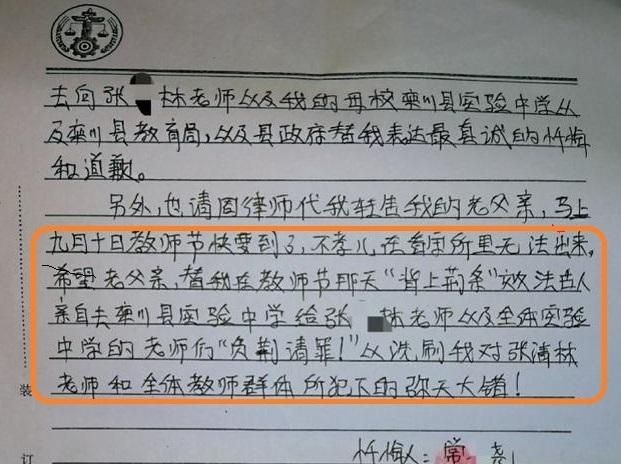 去向张 林老师以及我的母校栾川县实验中学以
及栾川县教育局,以及县政府替我表达最真诚的忏悔
和道歉。
另外,也请周律师代我转告我的老父亲,马上
九月十日教师节快要到了,不孝儿在看守所里无法出来,
希望老父亲,替我在教师节那天“背上荆条”效法古人
亲自去栾川县实验中学给张 林老师以及全体实验
中学的老师们“负荆请罪!”以洗刷我对张清林
老师和全体教师群体所犯下的弥天大错!
忏悔人:常 尧
装
订